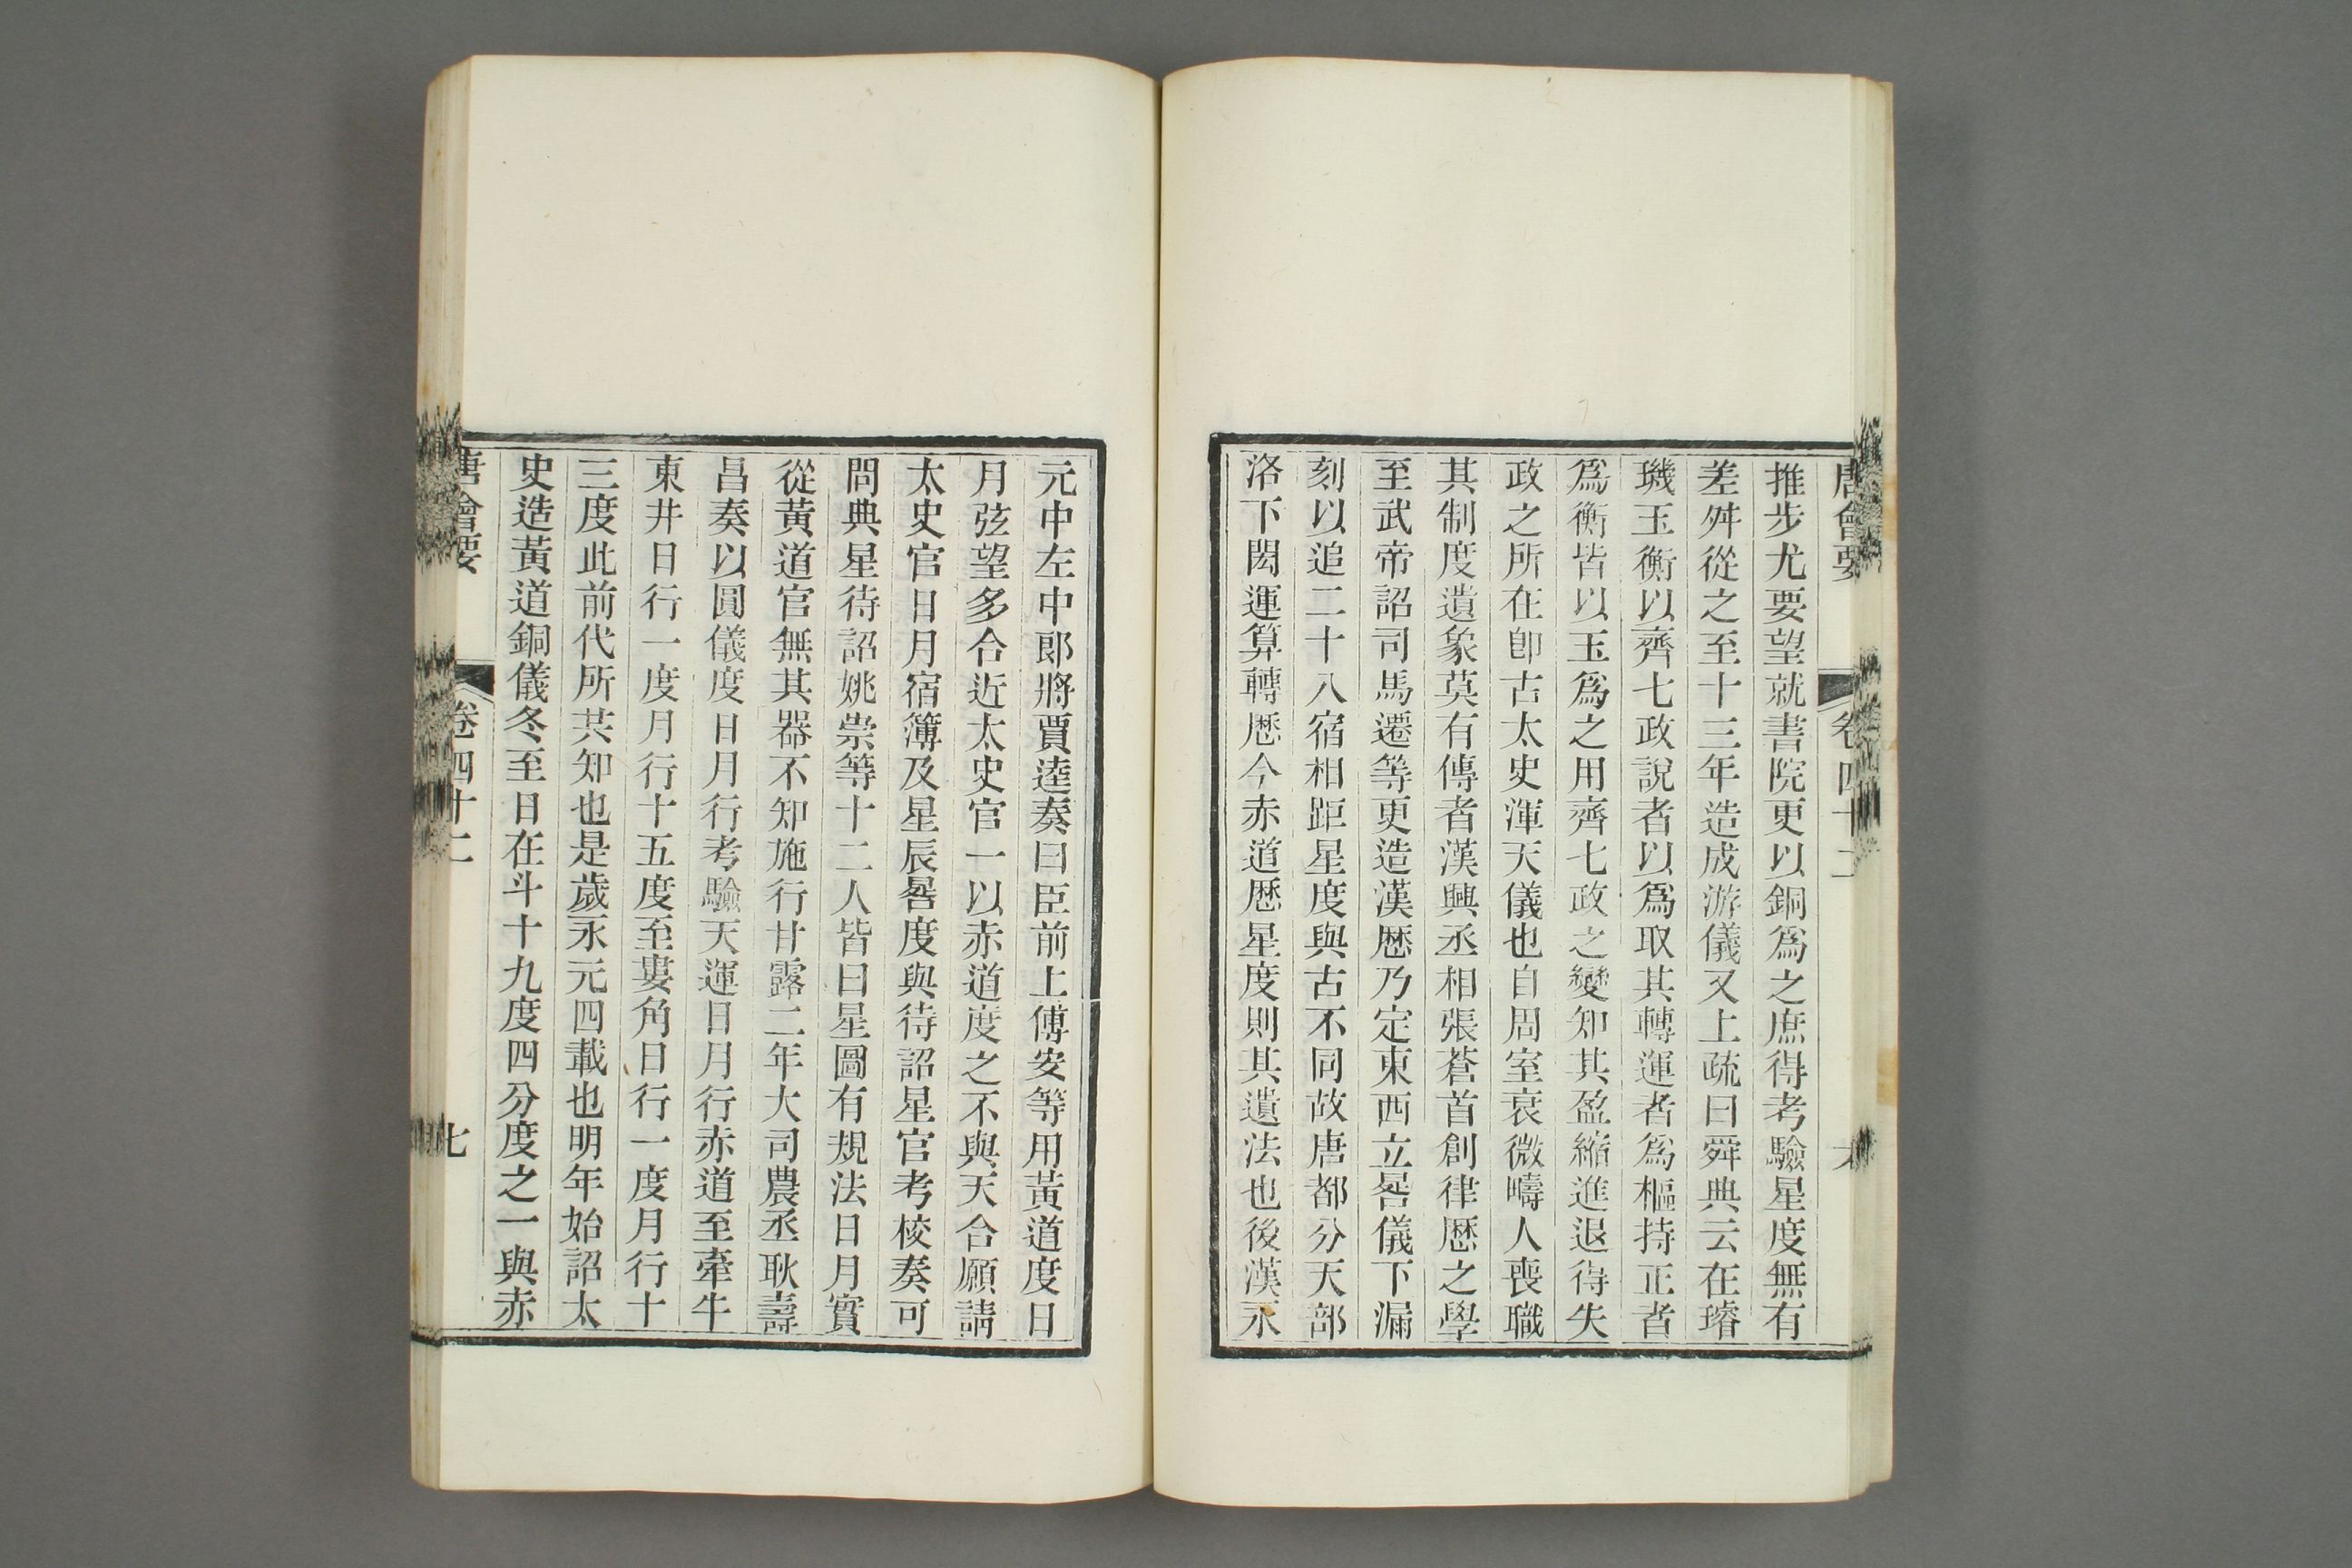 唐會要 卷四十二 六
推步尤要望就書院更以銅爲之庶得考驗星度無有
差舛從之至十三年造成游儀又上疏曰舜典云在璿
璣玉衡以齊七政說者以爲取其轉運者爲樞持正者
爲衡皆以玉爲之用齊七政之變知其盈縮進退得失
政之所在卽古太史渾天儀也自周室衰微疇人喪職
其制度遺象莫有傳者漢興丞相張蒼首創律歷之學
至武帝詔司馬遷等更造漢歷乃定東西立晷儀下漏
刻以追二十八宿相距星度與古不同故唐都分天部
洛下閎運算轉歷今赤道歷星度則其遺法也後漢永
元中左中郞將賈逵奏曰臣前上傅安等用黃道度日
月弦望多合近太史官一以赤道度之不與天合願請
太史官日月宿簿及星辰晷度與待詔星官考校奏可
問典星待詔姚崇等十二人皆曰星圖有規法日月實
從黃道官無其器不知施行甘露二年大司農丞耿壽
昌奏以圓儀度日月行考驗天運日月行赤道至牽牛
東井日行一度月行十五度至婁角日行一度月行十
三度此前代所共知也是歲永元四載也明年始詔太
史造黃道銅儀冬至日在斗十九度四分度之一與赤
唐會要 卷四十二 七